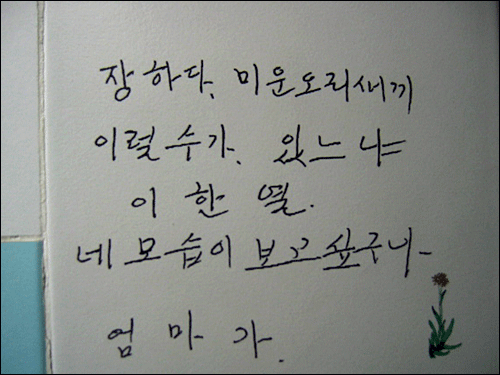 장하다. 미운오리새끼
이럴수가. 있느냐
이 한 열.
네 모습이 보고 싶구나
엄 마 가.